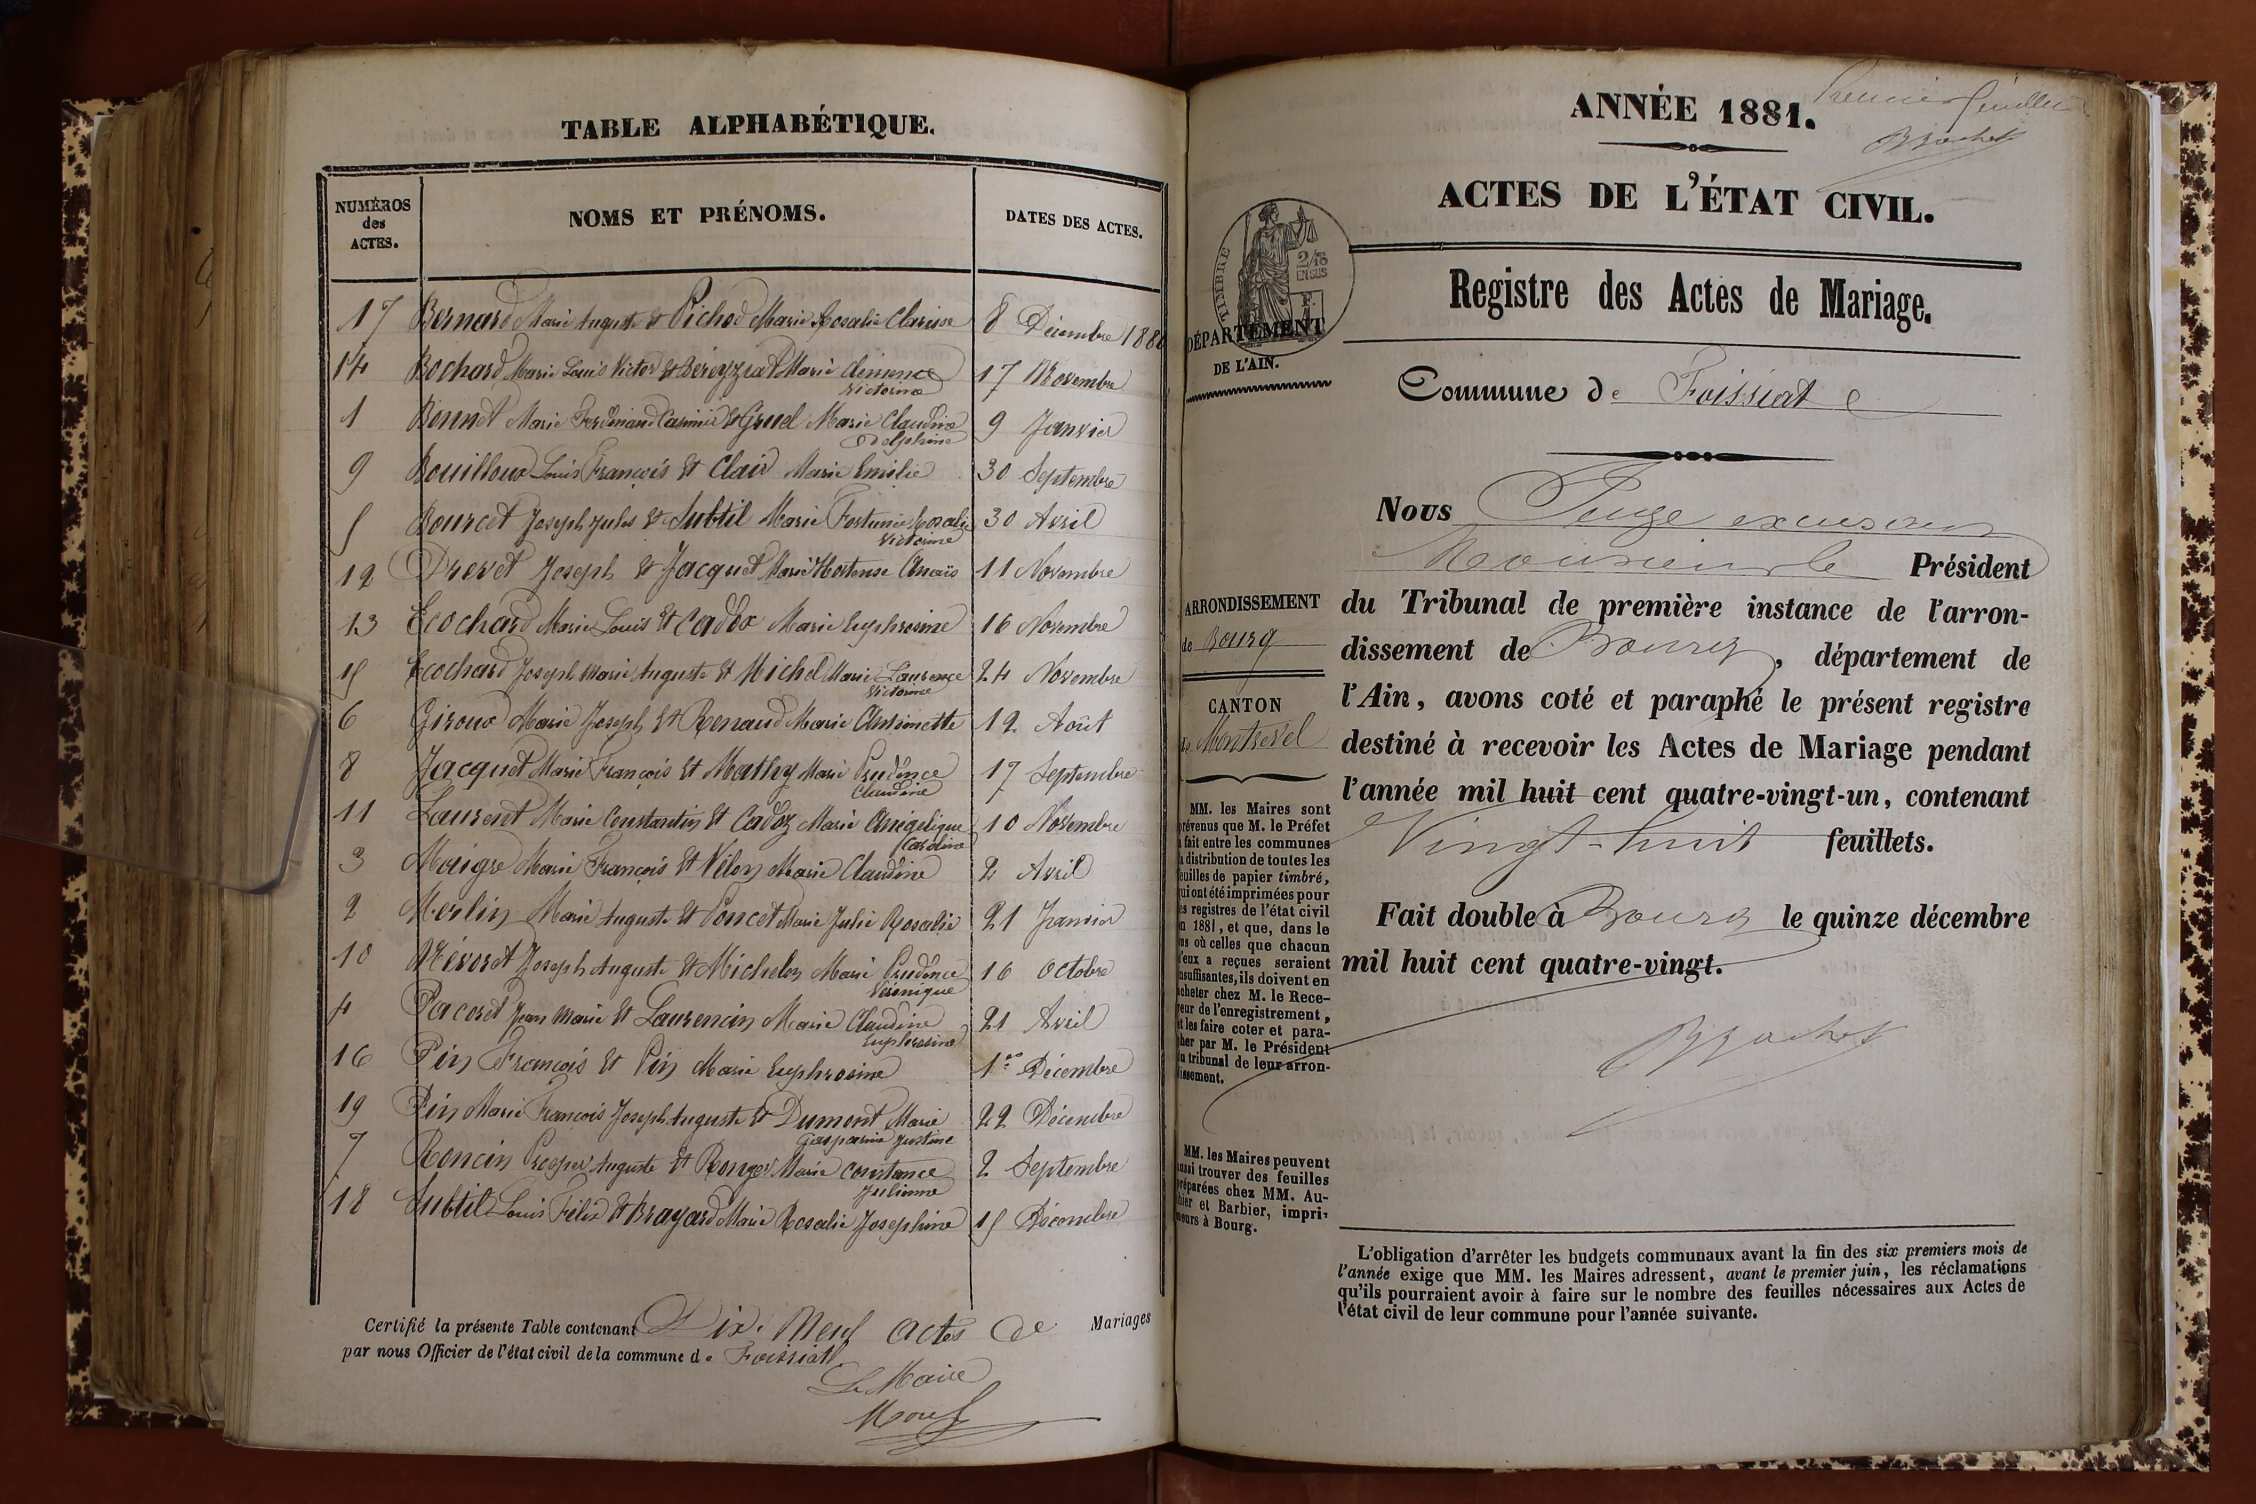 TABLE ALPHABÉTIQUE.
NUMÉROS des ACTES.
NOMS ET PRÉNOMS.
DATES DES ACTES.
17 Bernard Marie Auguste et Pichod Marie Rosalie Clarisse 8 Décembre 1880
14 Bochard Marie Louis Victor et Béreyziat Marie Clémence 17 Novembre
Victorine
1 Bonnet Marie Ferdinand Casimir et Gruel Marie Claudine 9 Janvier
Delphine
9 Bouilloux Louis François et Clair Marie Emilie 30 Septembre
5 Bourcet Joseph Jules et Subtil Marie Fortunée Rosalie 30 Avril
Victorine
12 Drevet Joseph et Jacquet Marie Hortense Anaïs 11 Novembre
13 Ecochard Marie Louis et Cadoz Marie Euphrosine 16 Novembre
15 Ecochard Joseph Marie Auguste et Michel Marie Laurence 24 Novembre
Victorine
6 Giroud Marie Joseph et Renaud Marie Antoinette 12 Août
8 Jacquet Marie François et Mathy Marie Prudence 17 Septembre
Claudine
11 Laurent Marie Constantin et Cadoz Marie Angelique 10 Novembre
Caroline
3 Maigre Marie François et Vélon Marie Claudine 2 Avril
2 Merlin Marie Auguste et Poncet Marie Julie Rosalie 21 Janvier
10 Névoret Joseph Auguste et Michelon Marie Prudence 16 Octobre
Véronique
4 Pacoret Jean Marie et Laurencin Marie Claudine 21 Avril
Euphrosine
16 Pin François et Pin Marie Euphrosine 1er Décembre
19 Pin Marie François Joseph Auguste et Dumont Marie 22 Décembre
Gasparine Justine
7 Roncin Prosper Auguste et Ronger Marie Constance 2 Septembre
Julienne
18 Subtil Louis Félix et Brayard Marie Rosalie Josephine 15 Décembre
Certifié la présente Table contenant Dix Neuf actes de Mariages
par nous Officier de l'état civil de la commune de Foissiat
Le Maire
ANNÉE 1881.
Premier feuillet
Brachet
ACTES DE L'ÉTAT CIVIL.
TIMBRE
2/10 EN SUS
DÉPARTEMENT
DE L'AIN.
Registre des Actes de Mariage.
Commune de Foissiat
Nous Juge excusant
Monsieur le Président
du Tribunal de première instance de l'arron-
dissement de Bourg, département de
l'Ain, avons coté et paraphé le présent registre
destiné à recevoir les Actes de Mariage pendant
l'année mil huit cent quatre-vingt-un, contenant
Vingt-huit feuillets.
Fait double à Bourg le quinze décembre
mil huit cent quatre-vingt.
Brachet
ARRONDISSEMENT
de Bourg
CANTON
de Montrevel
MM. les Maires sont
prévenus que M. le Préfet
a fait entre les communes
la distribution de toutes les
feuilles de papier timbré,
qui ont été imprimées pour
les registres de l'état civil
en 1881, et que, dans le
cas où celles que chacun
d'eux a reçues seraient
insuffisantes, ils doivent en
acheter chez M. le Rece-
veur de l'enregistrement,
et les faire coter et para-
pher par M. le Président
du tribunal de leur arron-
dissement.
MM. les Maires peuvent
aussi trouver des feuilles
préparées chez MM. Au-
thier et Barbier, impri-
meurs à Bourg.
L'obligation d'arrêter les budgets communaux avant la fin des six premiers mois de
l'année exige que MM. les Maires adressent, avant le premier juin, les réclamations
qu'ils pourraient avoir à faire sur le nombre des feuilles nécessaires aux Actes de
l'état civil de leur commune pour l'année suivante.